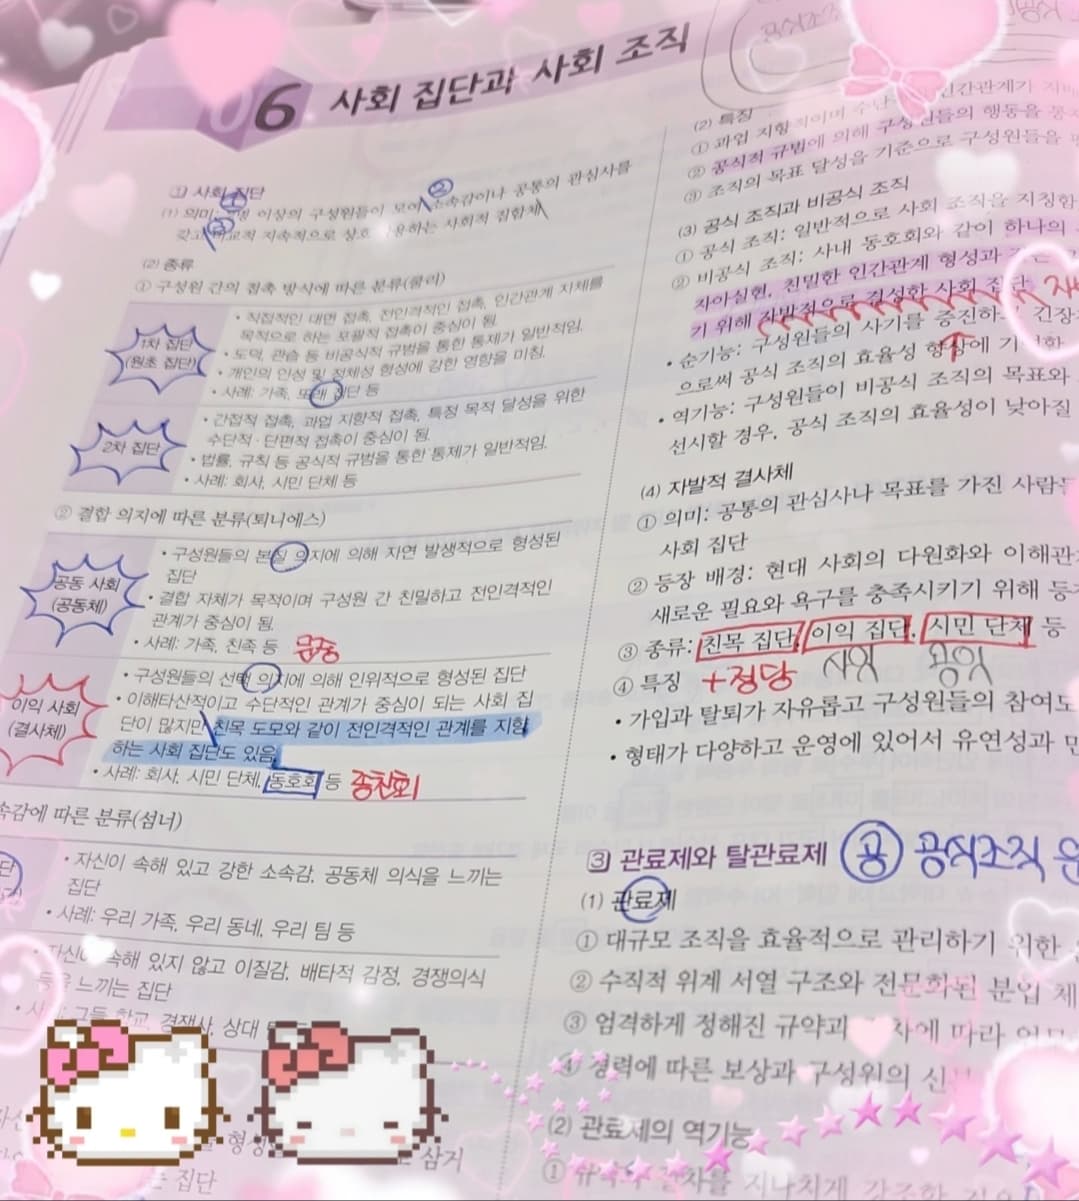 6 사회 집단과 사회 조직
1 사회 집단
(1) 의미: 이상의 구성원들이 모여 소속감이나 공통의 관심사를
② ③
갖고 지속적으로 상호 하는 사회적 집합체
(2) 종류
① 구성원 간의 접촉 방식에 따른 분류(쿨리)
1차 집단
(원초 집단)
• 직접적인 대면 접촉, 전인격적인 접촉, 인간관계 자체를
목적으로 하는 포괄적 접촉이 중심이 됨.
• 도덕, 관습 등 비공식적 규범을 통한 통제가 일반적임.
• 개인의 인성 및 정체성 형성에 강한 영향을 미침.
• 사례: 가족, 또래 집단 등
2차 집단
• 간접적 접촉, 과업 지향적 접촉, 특정 목적 달성을 위한
수단적·단편적 접촉이 중심이 됨.
• 법률, 규칙 등 공식적 규범을 통한 통제가 일반적임.
• 사례: 회사, 시민 단체 등
② 결합 의지에 따른 분류(퇴니에스)
공동 사회
(공동체)
• 구성원들의 본질 의지에 의해 자연 발생적으로 형성된
집단
• 결합 자체가 목적이며 구성원 간 친밀하고 전인격적인
관계가 중심이 됨.
• 사례: 가족, 친족 등
이익 사회
(결사체)
• 구성원들의 선택 의지에 의해 인위적으로 형성된 집단
• 이해타산적이고 수단적인 관계가 중심이 되는 사회 집
단이 많지만 친목 도모와 같이 전인격적인 관계를 지향
하는 사회 집단도 있음.
• 사례: 회사, 시민 단체, 동호회 등 종친회
속감에 따른 분류(섬너)
단
• 자신이 속해 있고 강한 소속감, 공동체 의식을 느끼는
집단
• 사례: 우리 가족, 우리 동네, 우리 팀 등
• 자신이 속해 있지 않고 이질감, 배타적 감정, 경쟁의식
등을 느끼는 집단
• 사례: 그들 학교, 경쟁사, 상대
삼거
집단
공식조직
(2) 특징
① 과업 지향적이며 인간관계가
② 공식적 규범에 의해 구성원들의 행동을 통
③ 조직의 목표 달성을 기준으로 구성원들을
(3) 공식 조직과 비공식 조직
① 공식 조직: 일반적으로 사회 조직을 지칭함
② 비공식 조직: 사내 동호회와 같이 하나의
자아실현, 친밀한 인간관계 형성과
기 위해 자발적으로 결성한 사회 집단
• 순기능: 구성원들의 사기를 증진하 긴장
으로써 공식 조직의 효율성 향상에 기
• 역기능: 구성원들이 비공식 조직의 목표와
선시할 경우, 공식 조직의 효율성이 낮아질
(4) 자발적 결사체
① 의미: 공통의 관심사나 목표를 가진 사람
사회 집단
② 등장 배경: 현대 사회의 다원화와 이해관
새로운 필요와 욕구를 충족시키기 위해 등
③ 종류: 친목 집단, 이익 집단, 시민 단체 등
④ 특징 +정당 사익 공익
• 가입과 탈퇴가 자유롭고 구성원들의 참여도
• 형태가 다양하고 운영에 있어서 유연성과
3 관료제와 탈관료제 공 공식조직
(1) 관료제
① 대규모 조직을 효율적으로 관리하기 위한
② 수직적 위계 서열 구조와 전문화된 분업 체
③ 엄격하게 정해진 규약과 따라
④ 경력에 따른 보상과 구성원의 신
(2) 관료제의 역기능
① 규약과 절차를 지나치게